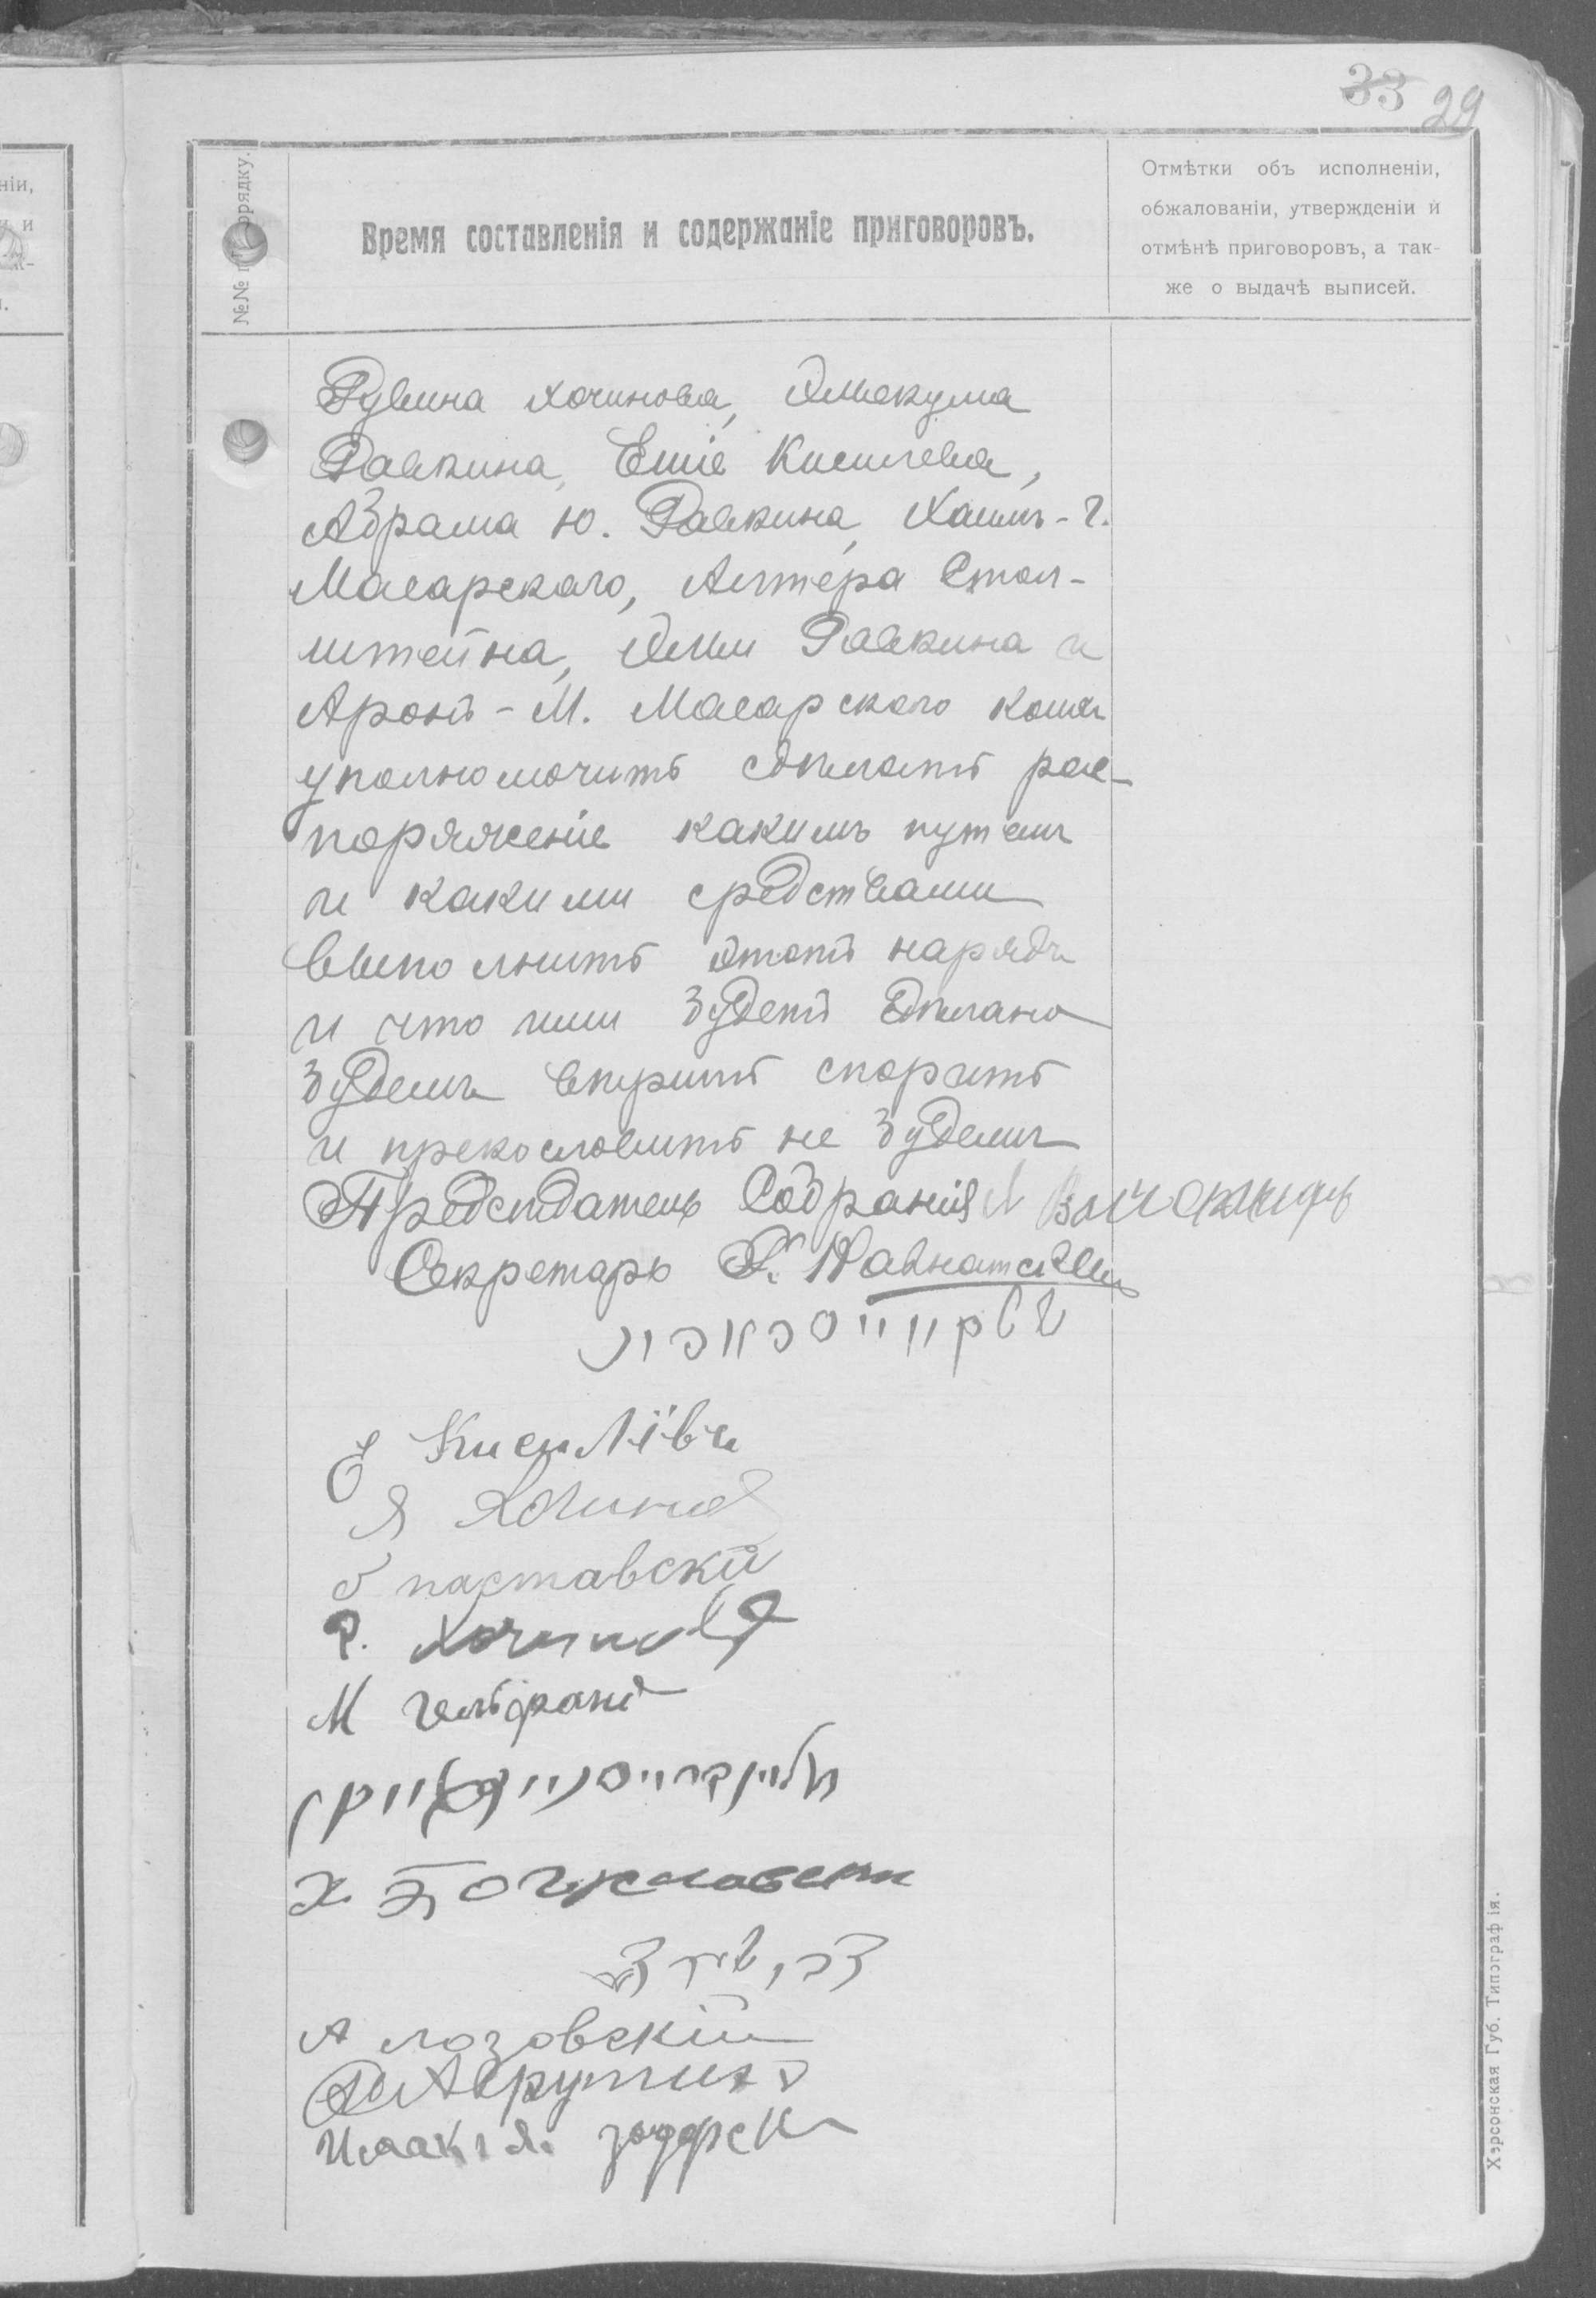 33 29
№№ по порядку.
Время составленія и содержаніе приговоровъ.
Отмѣтки объ исполненіи,
обжалованіи, утвержденіи и
отмѣнѣ приговоровъ, а так-
же о выдачѣ выписей.
Рувина Хочинова,
Равкина, Еше Киселева,
Абрама Ю. Равкина, Хаимъ-Г.
Масарского, Алтера Стол-
штейна, Эли Равкина и
Аронъ-М. Масарского коим
уполномочить сдѣлать рас-
поряженіе какимъ путем
и какими средствами
выполнить этотъ нарядъ
и что ими будетъ сдѣлано
будемъ вѣрить спорить
и прекословить не будемъ
Предсѣдатель Собранія
Секретарь
Е Киселівъ
Я Хочинов
паставскій
Р. Хочинов
М Гельфанд
Х
А лозовскій
Аврутинъ
Исаакъ Я.
Херсонская Губ. Типографія.